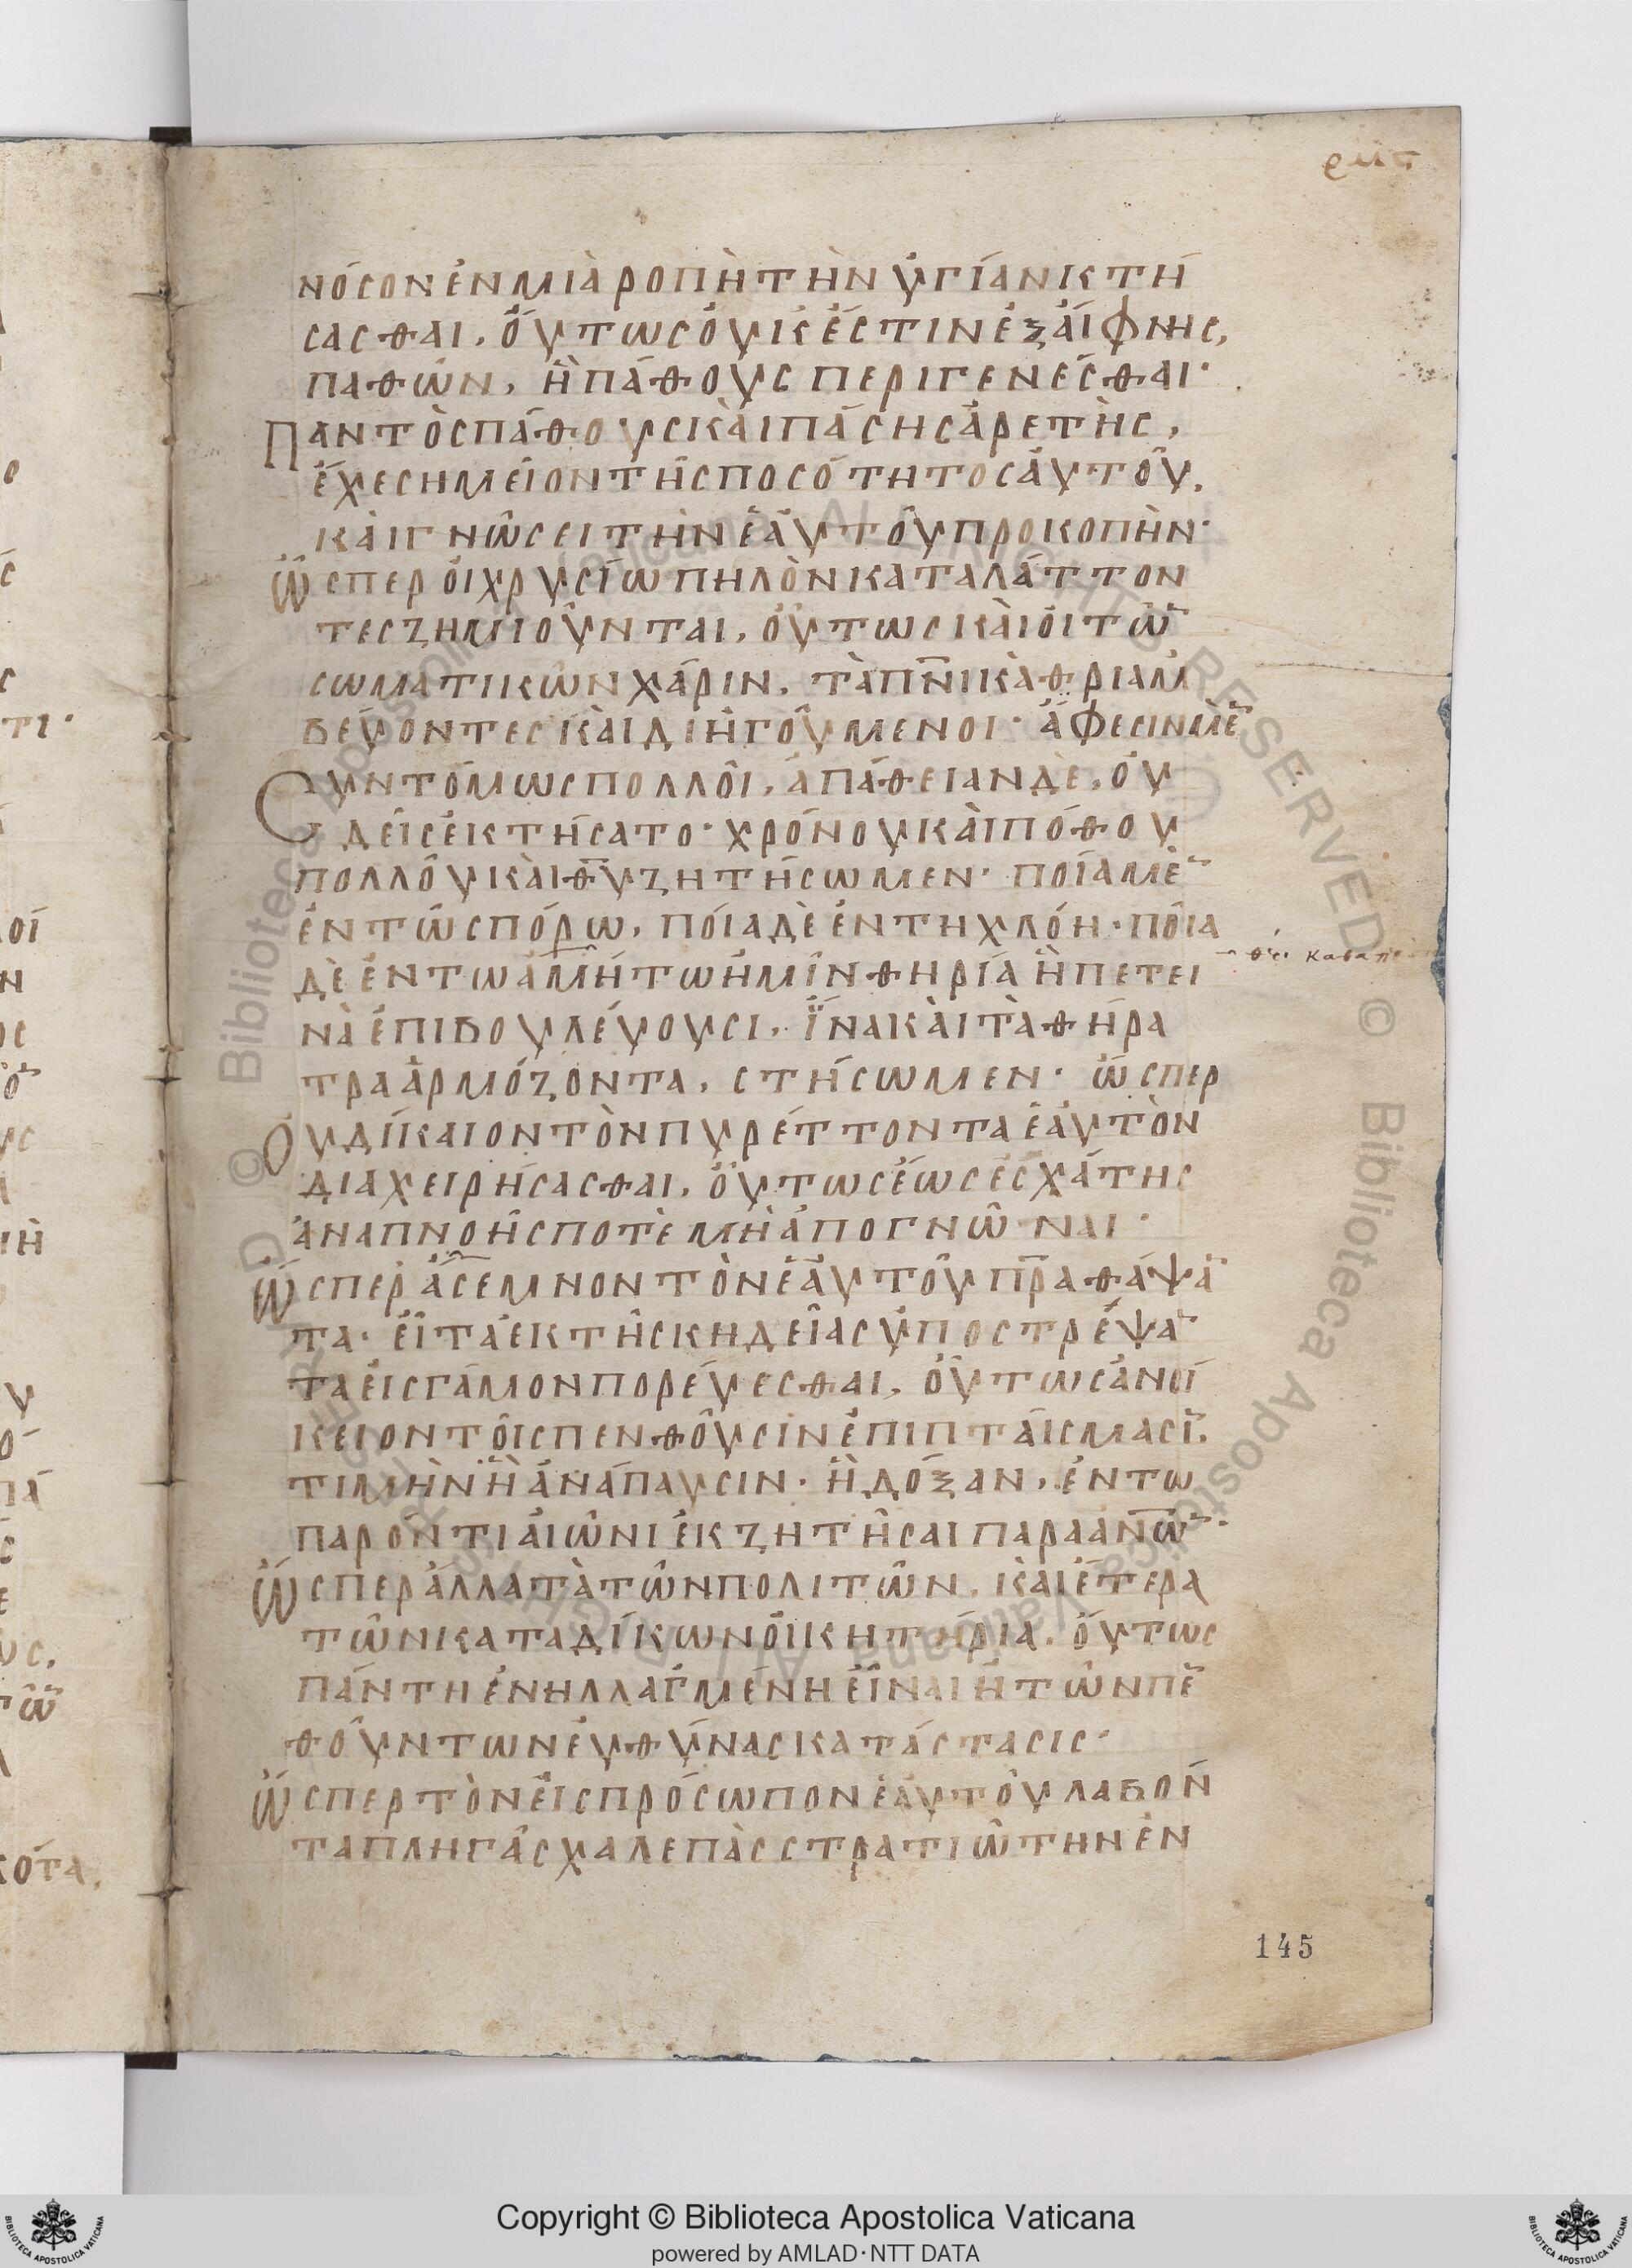 νόσον ἐν μιὰ ροπὴ τὴν ὑγίαν κτή
σασθαι, ὅυτως ὀυκ ἔστιν ἐξάιφνης,
παθῶν, ἢ πάθους περιγενέσθαι·
Παντὸς πάθους κὰι πάσης ἀρετῆς,
ἔχε σημεῖον τῆς ποσότητος ἀυτοῦ,
κὰι γνώσει τὴν ἑαυτοῦ προκοπὴν·
Ὥσπερ ὁι χρυσίω πηλὸν καταλάττον
τες ζημιοῦνται, ὅυτως κὰι ὁι τῶ̄
σωματικῶν χάριν, τὰ πν̅ικὰ θριαμ
βεύοντες κὰι διηγοῦμενοι· ἄφεσιν μὲ̄
Συντόμως πολλοῖ, ἀπάθειαν δὲ, ὀυ
δεῖς ἐκτήσατο· χρόνου κὰι πόθου
πολλοῦ κὰι θ̅υ ζητήσωμεν· ποῖα μὲ̄
ἐν τῶ σπόρω, πόια δὲ ἐν τη χλόη· πόια
δὲ ἐν τω ἀμήτω ἡμῖν θηρία ἢ πετει
νὰ ἐπιβουλέυουσι, ἵνα κὰι τὰ θήρα
τρα ἁρμόζοντα, στήσωμεν· ὥσπερ
Ὀυ δίκαιον τὸν πυρέττοντα ἑαυτὸν
διαχειρήσασθαι, ὅυτως ἕως ἐσχάτης
ἀναπνοῆς ποτὲ μὴ ἀπογνῶναι·
Ὥσπερ ἄσεμνον τὸν ἑαυτοῦ π̅ρα θάψᾱ
τα· ἔιτα ἐκ τῆς κηδείας ὑποστρέψᾱ
τα ἐις γάμον πορέυεσθαι, ὅυτως ἀνοί
κειον τοῖς πενθοῦσιν ἐπι πταίσμασῑ,
τιμὴν ἢ ἀνάπαυσιν· ἢ δόξαν, ἐν τω
παρόντι ἀιῶνι ἐκζητῆσαι παρα ἀν̅ω̄·
Ὥσπερ ἄλλα τὰ τῶν πολιτῶν, κὰι ἕτερα
τῶν καταδίκων ὀικητήρια, ὅυτως
πάντη ἐνηλλαγμένη ἐῖναι ἡ τῶν πε̄
θοῦντων ἐυθύνας κατάστασις·
Ὥσπερ τὸν ἐις πρόσωπον ἑαυτοῦ λαβόν
τα πληγὰς χαλεπὰς στρατιῶτην ἐν
145
Copyright © Biblioteca Apostolica Vaticana
powered by AMLAD·NTT DATA